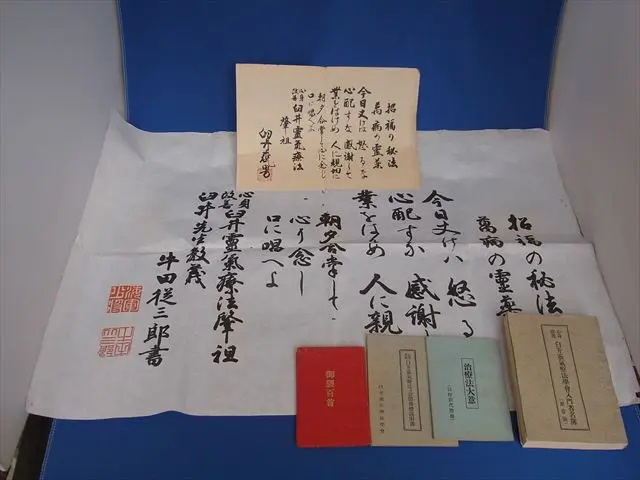 招福の秘法
萬病の靈薬
今日丈けは 怒るな
心配すな 感謝して
業をはげめ 人に親切に
朝夕合掌して心に念じ
口に唱へよ
心身改善 臼井靈氣療法
肇祖
臼井甕男
招福の秘法
萬病の靈薬
今日丈けハ 怒る
心配すな 感謝し
業をはげめ 人に親
朝夕合掌して
心に念し
口に唱へよ
心身改善 臼井靈氣療法肇祖
臼井先生教義
牛田従三郎書
御製百首
治療法大意
臼井靈氣療法學會入門者名簿